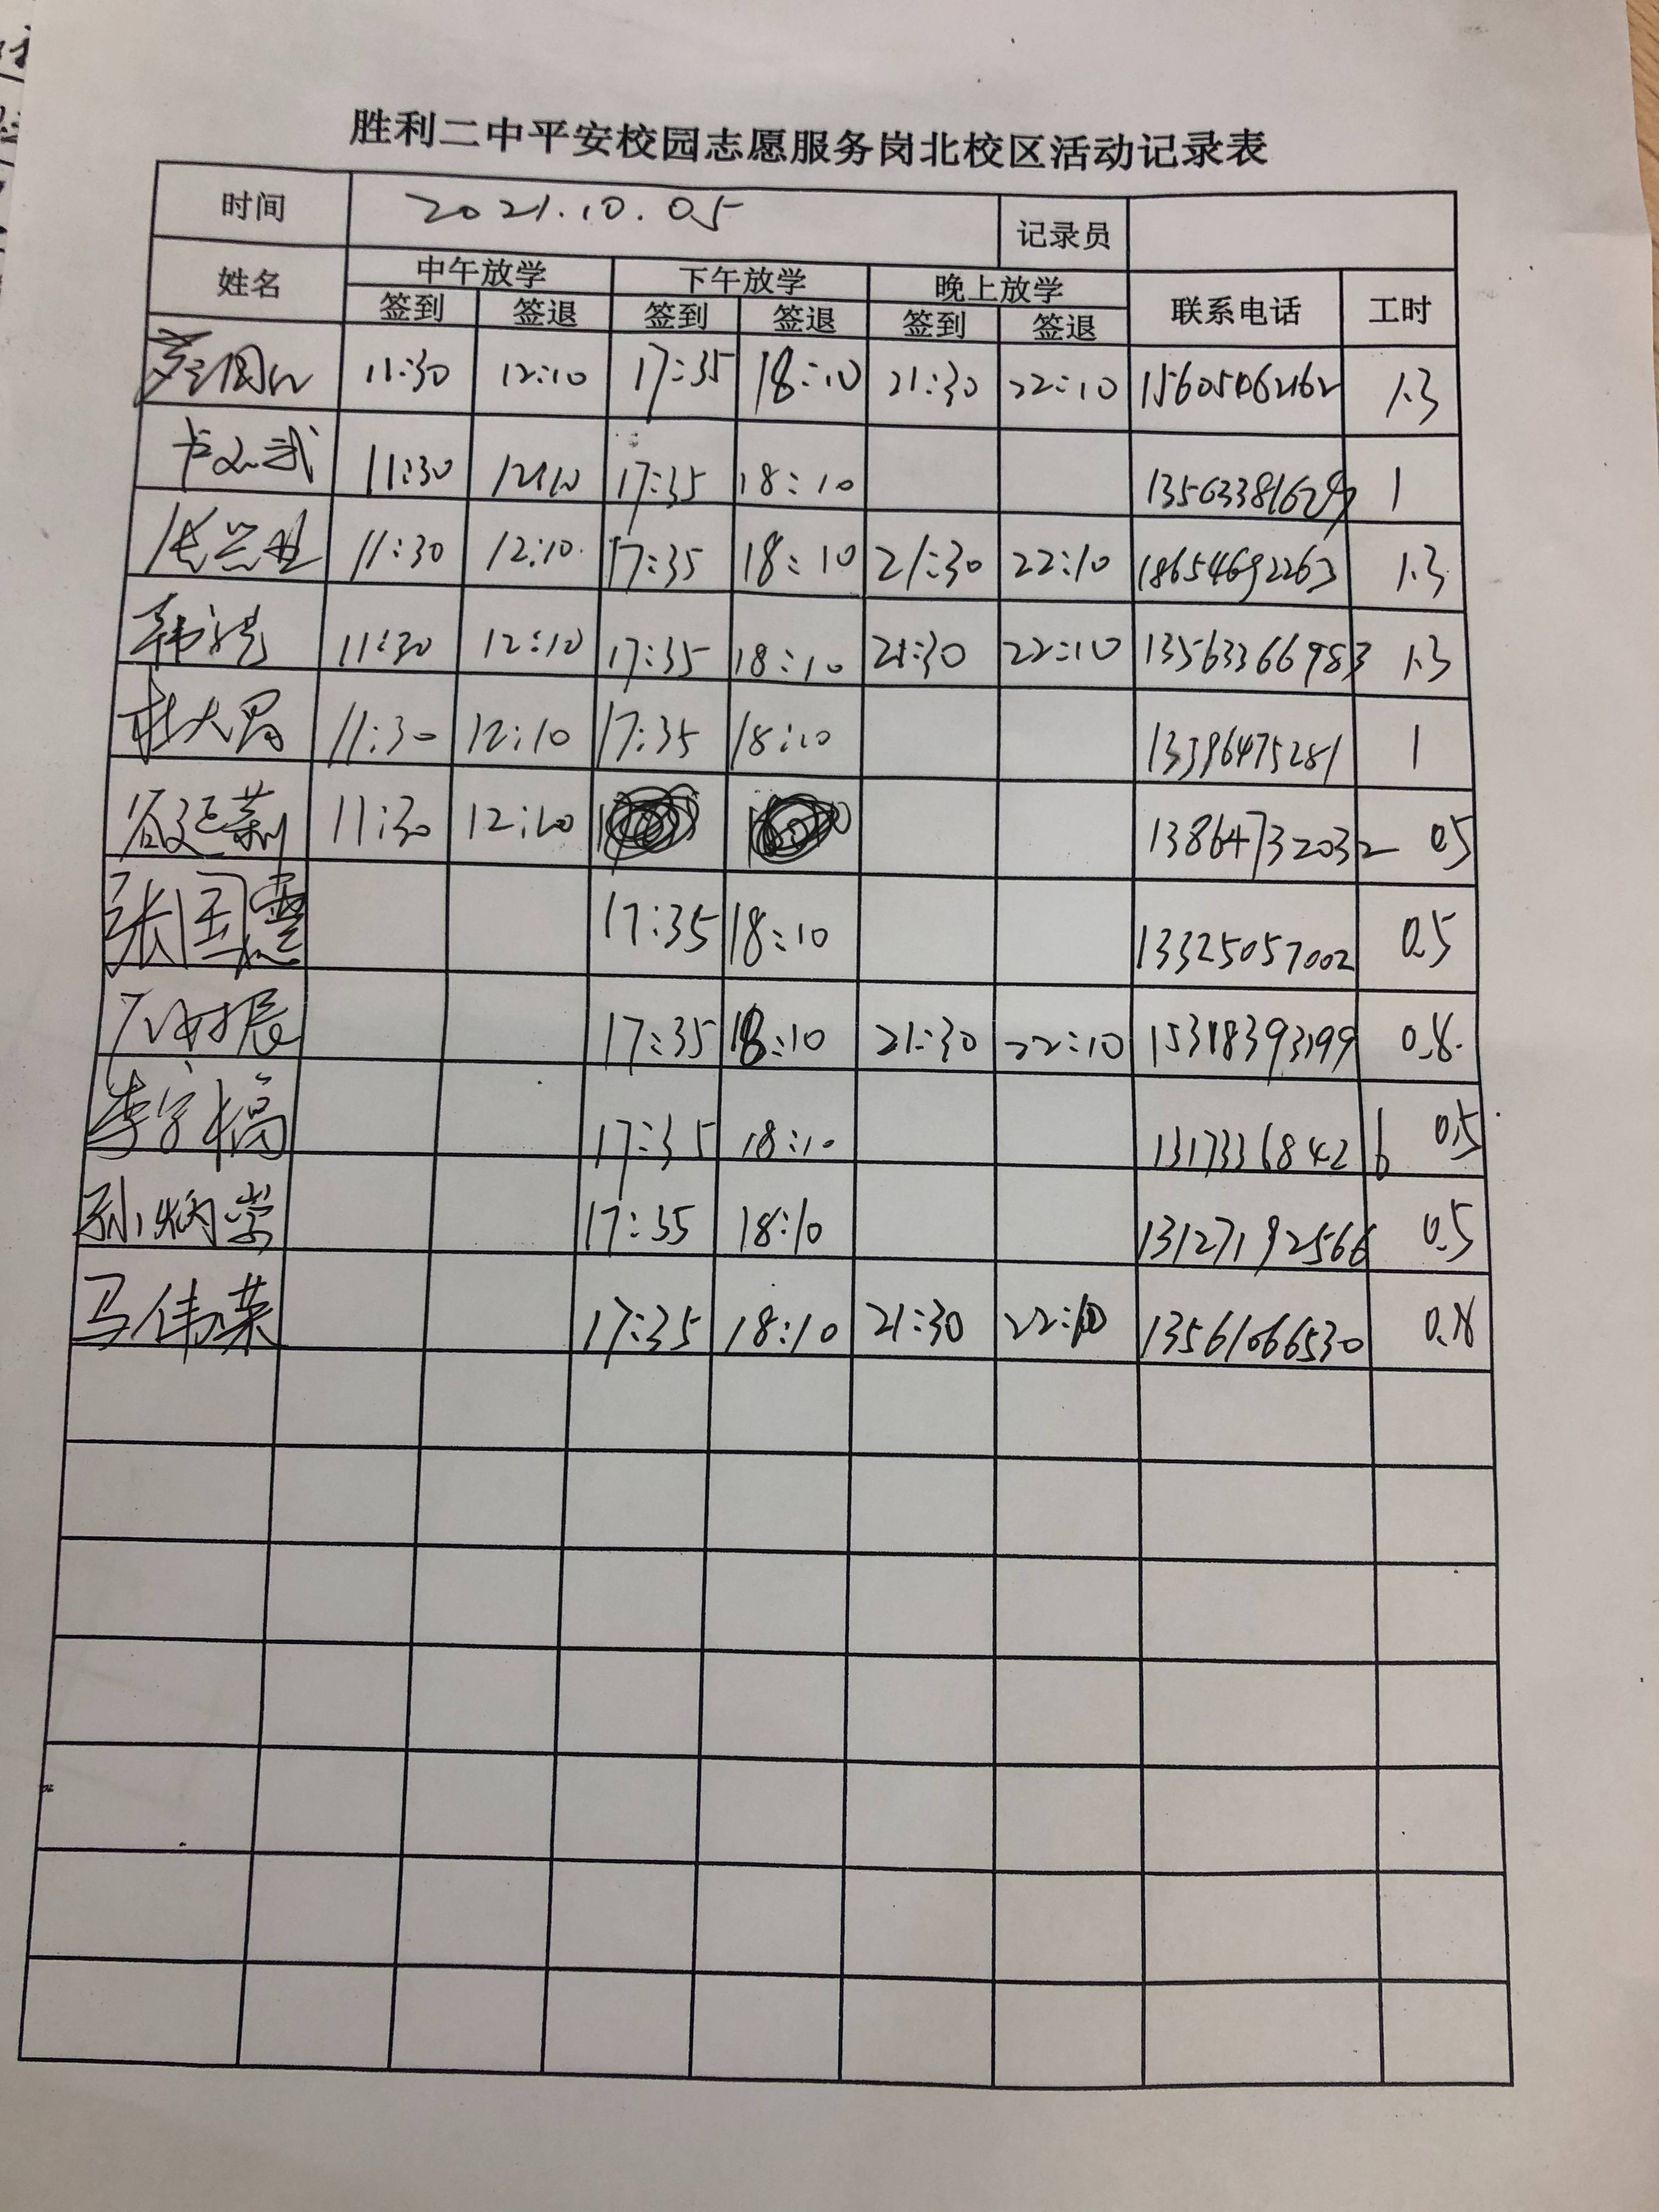 胜利二中平安校园志愿服务岗北校区活动记录表
时间 2021.10.05 记录员
姓名 中午放学 下午放学 晚上放学 联系电话 工时
签到 签退 签到 签退 签到 签退
11:30 12:10 17:35 18:10 21:30 22:10 15605462162 1.3
11:30 12:10 17:35 18:10 1
11:30 12:10 17:35 18:10 21:30 22:10 18654692263 1.3
11:30 12:10 17:35 18:10 21:30 22:10 13563366983 1.3
11:30 12:10 17:35 18:10 13396475281 1
11:30 12:10 13864732032 0.5
张国 17:35 18:10 13325057002 0.5
17:35 18:10 21:30 22:10 15318393199 0.8
李 17:35 18:10 13173368426 0.5
孙炳学 17:35 18:10 13127192566 0.5
马伟荣 17:35 18:10 21:30 22:10 13561066530 0.8